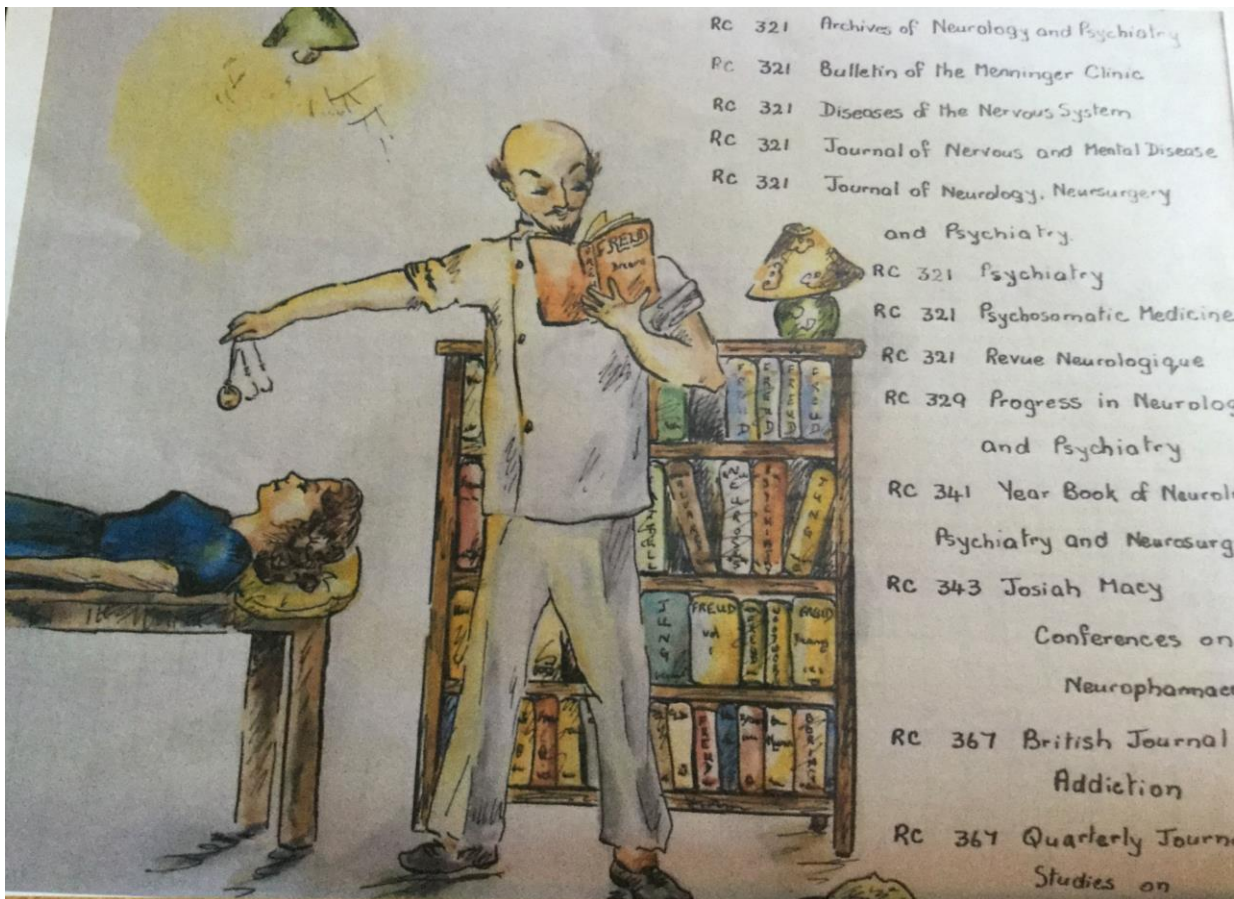 RC 321 Archives of Neurology and Psychiatry
RC 321 Bulletin of the Menninger Clinic
RC 321 Diseases of the Nervous System
RC 321 Journal of Nervous and Mental Disease
RC 321 Journal of Neurology, Neursurgery
and Psychiatry.
RC 321 Psychiatry
RC 321 Psychosomatic Medicine
RC 321 Revue Neurologique
RC 329 Progress in Neurolog
and Psychiatry
RC 341 Year Book of Neurol
Psychiatry and Neurosurg
RC 343 Josiah Macy
Conferences on
Neuropharmac
RC 367 British Journal
Addiction
RC 367 Quarterly Journ
Studies on
FREUD
FREUD
FREUD
FREUD
FREUD
JUNG
JUNG
FREUD
vol
1